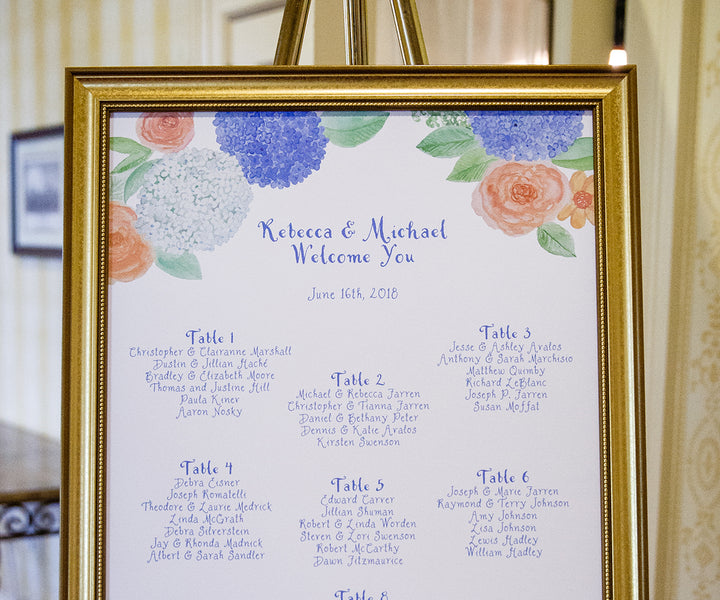 Rebecca & Michael
Welcome You
June 16th, 2018
Table 1
Christopher & Clairanne Marshall
Dustin & Jillian Haché
Bradley & Elizabeth Moore
Thomas and Justine Hill
Paula Kiner
Aaron Nosky
Table 2
Michael & Rebecca Farren
Christopher & Tianna Farren
Daniel & Bethany Peter
Dennis & Katie Avalos
Kirsten Swenson
Table 3
Jesse & Ashley Avalos
Anthony & Sarah Marchisio
Matthew Quimby
Richard LeBlanc
Joseph P. Farren
Susan Moffat
Table 4
Debra Eisner
Joseph Romatelli
Theodore & Laurie Medrick
Linda McGrath
Debra Silverstein
Jay & Rhonda Madnick
Albert & Sarah Sandler
Table 5
Edward Carver
Jillian Shuman
Robert & Linda Worden
Steven & Lori Swenson
Robert McCarthy
Dawn Fitzmaurice
Table 6
Joseph & Marie Farren
Raymond & Terry Johnson
Amy Johnson
Lisa Johnson
Lewis Hadley
William Hadley
Table 8